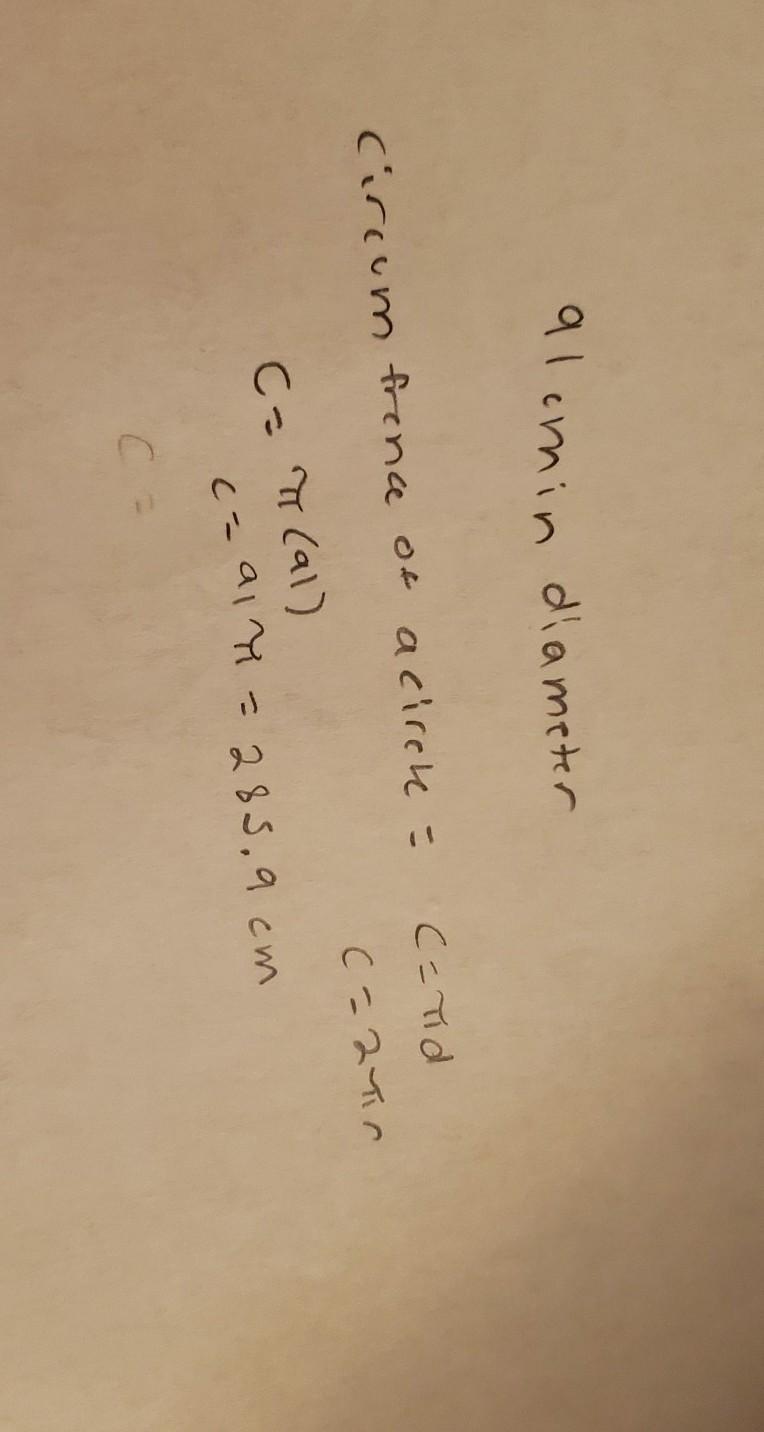 91 cm in diameter
circumfrence of a circle = C = πd
C = 2πr
C = π(91)
C = 91π = 285.9 cm
C =